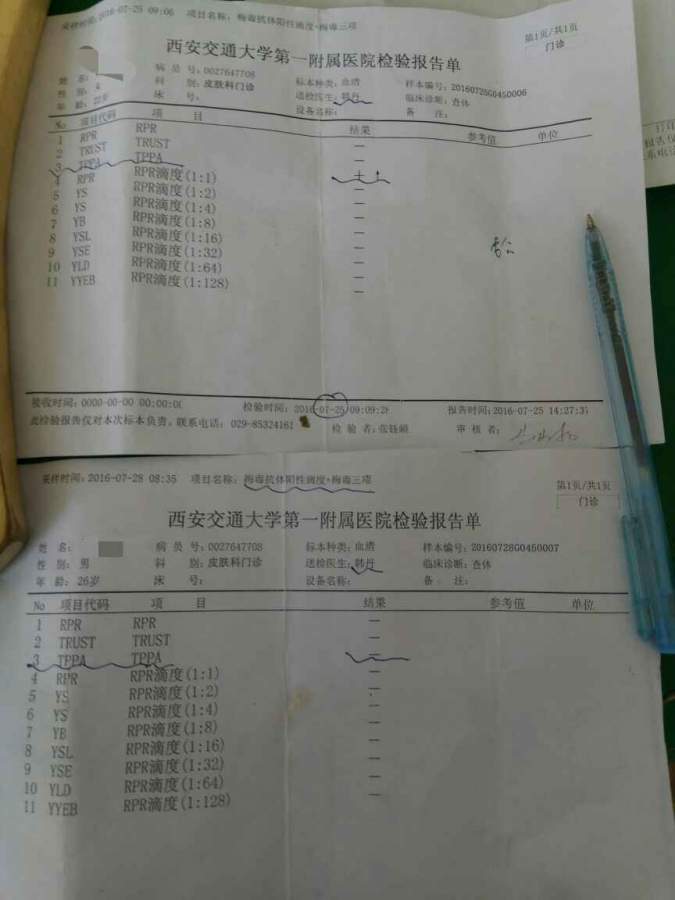 采样时间:2016-07-25 09:06 项目名称:梅毒抗体阳性滴度+梅毒三项
第1页/共1页
门诊
西安交通大学第一附属医院检验报告单
姓 名: 病 员 号:0027647708 标本种类:血清 样本编号:20160725G0450006
性 别:女 科 别:皮肤科门诊 送检医生:韩丹 临床诊断:查体
年 龄:22岁 床 号: 设备名称: 备 注:
No 项目代码 项 目 结果 参考值 单位
1 RPR RPR —
2 TRUST TRUST —
3 TPPA TPPA
4 RPR RPR滴度(1:1) —
5 YS RPR滴度(1:2) —
6 YS RPR滴度(1:4) —
7 YB RPR滴度(1:8) —
8 YSL RPR滴度(1:16) —
9 YSE RPR滴度(1:32) —
10 YLD RPR滴度(1:64) —
11 YYEB RPR滴度(1:128) —
接收时间:0000-00-00 00:00:00 检验时间:2016-07-25 09:09:28 报告时间:2016-07-25 14:27:37
此检验报告仅对本次标本负责。联系电话: 029-85324161 检 验 者: 审 核 者:
采样时间:2016-07-28 08:35 项目名称:梅毒抗体阳性滴度+梅毒三项
第1页/共1页
门诊
西安交通大学第一附属医院检验报告单
姓 名: 病 员 号:0027647708 标本种类:血清 样本编号:20160728G0450007
性 别:男 科 别:皮肤科门诊 送检医生:韩丹 临床诊断:查体
年 龄:26岁 床 号: 设备名称: 备 注:
No 项目代码 项 目 结果 参考值 单位
1 RPR RPR —
2 TRUST TRUST —
3 TPPA TPPA —
4 RPR RPR滴度(1:1) —
5 YS RPR滴度(1:2) —
6 YS RPR滴度(1:4) —
7 YB RPR滴度(1:8) —
8 YSL RPR滴度(1:16) —
9 YSE RPR滴度(1:32) —
10 YLD RPR滴度(1:64) —
11 YYEB RPR滴度(1:128) —